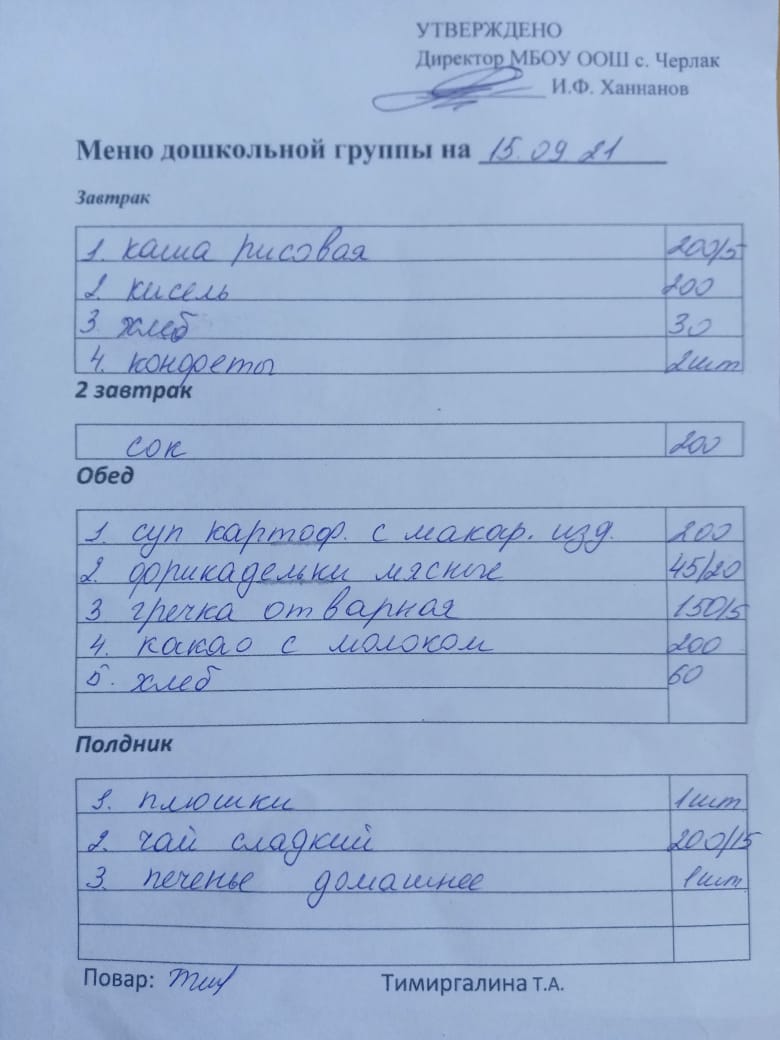 УТВЕРЖДЕНО
Директор МБОУ ООШ с. Черлак
И.Ф. Ханнанов
Меню дошкольной группы на 15.09 21
Завтрак
1. каша рисовая 200/5
2. кисель 200
3. хлеб 30
4. конфеты 2шт
2 завтрак
сок 200
Обед
1. суп картоф. с макар. изд. 200
2. фрикадельки мясные 45/20
3 гречка отварная 150/5
4. какао с молоком 200
5. хлеб 60
Полдник
1. плюшки 1шт
2. чай сладкий 200/15
3. печенье домашнее 1шт
Повар: Тимиргалина Т.А.